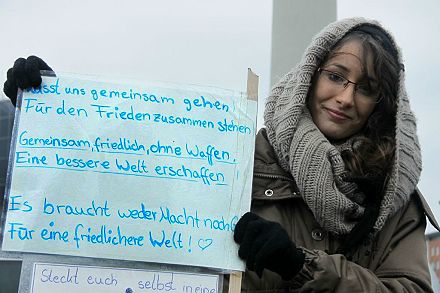 Lasst uns gemeinsam gehen!
Für den Frieden zusammen stehen
Gemeinsam, friedlich, ohne Waffen,
Eine bessere Welt erschaffen!
Es braucht weder Macht noch
Für eine friedlichere Welt! ♡
Steckt euch selbst in eine